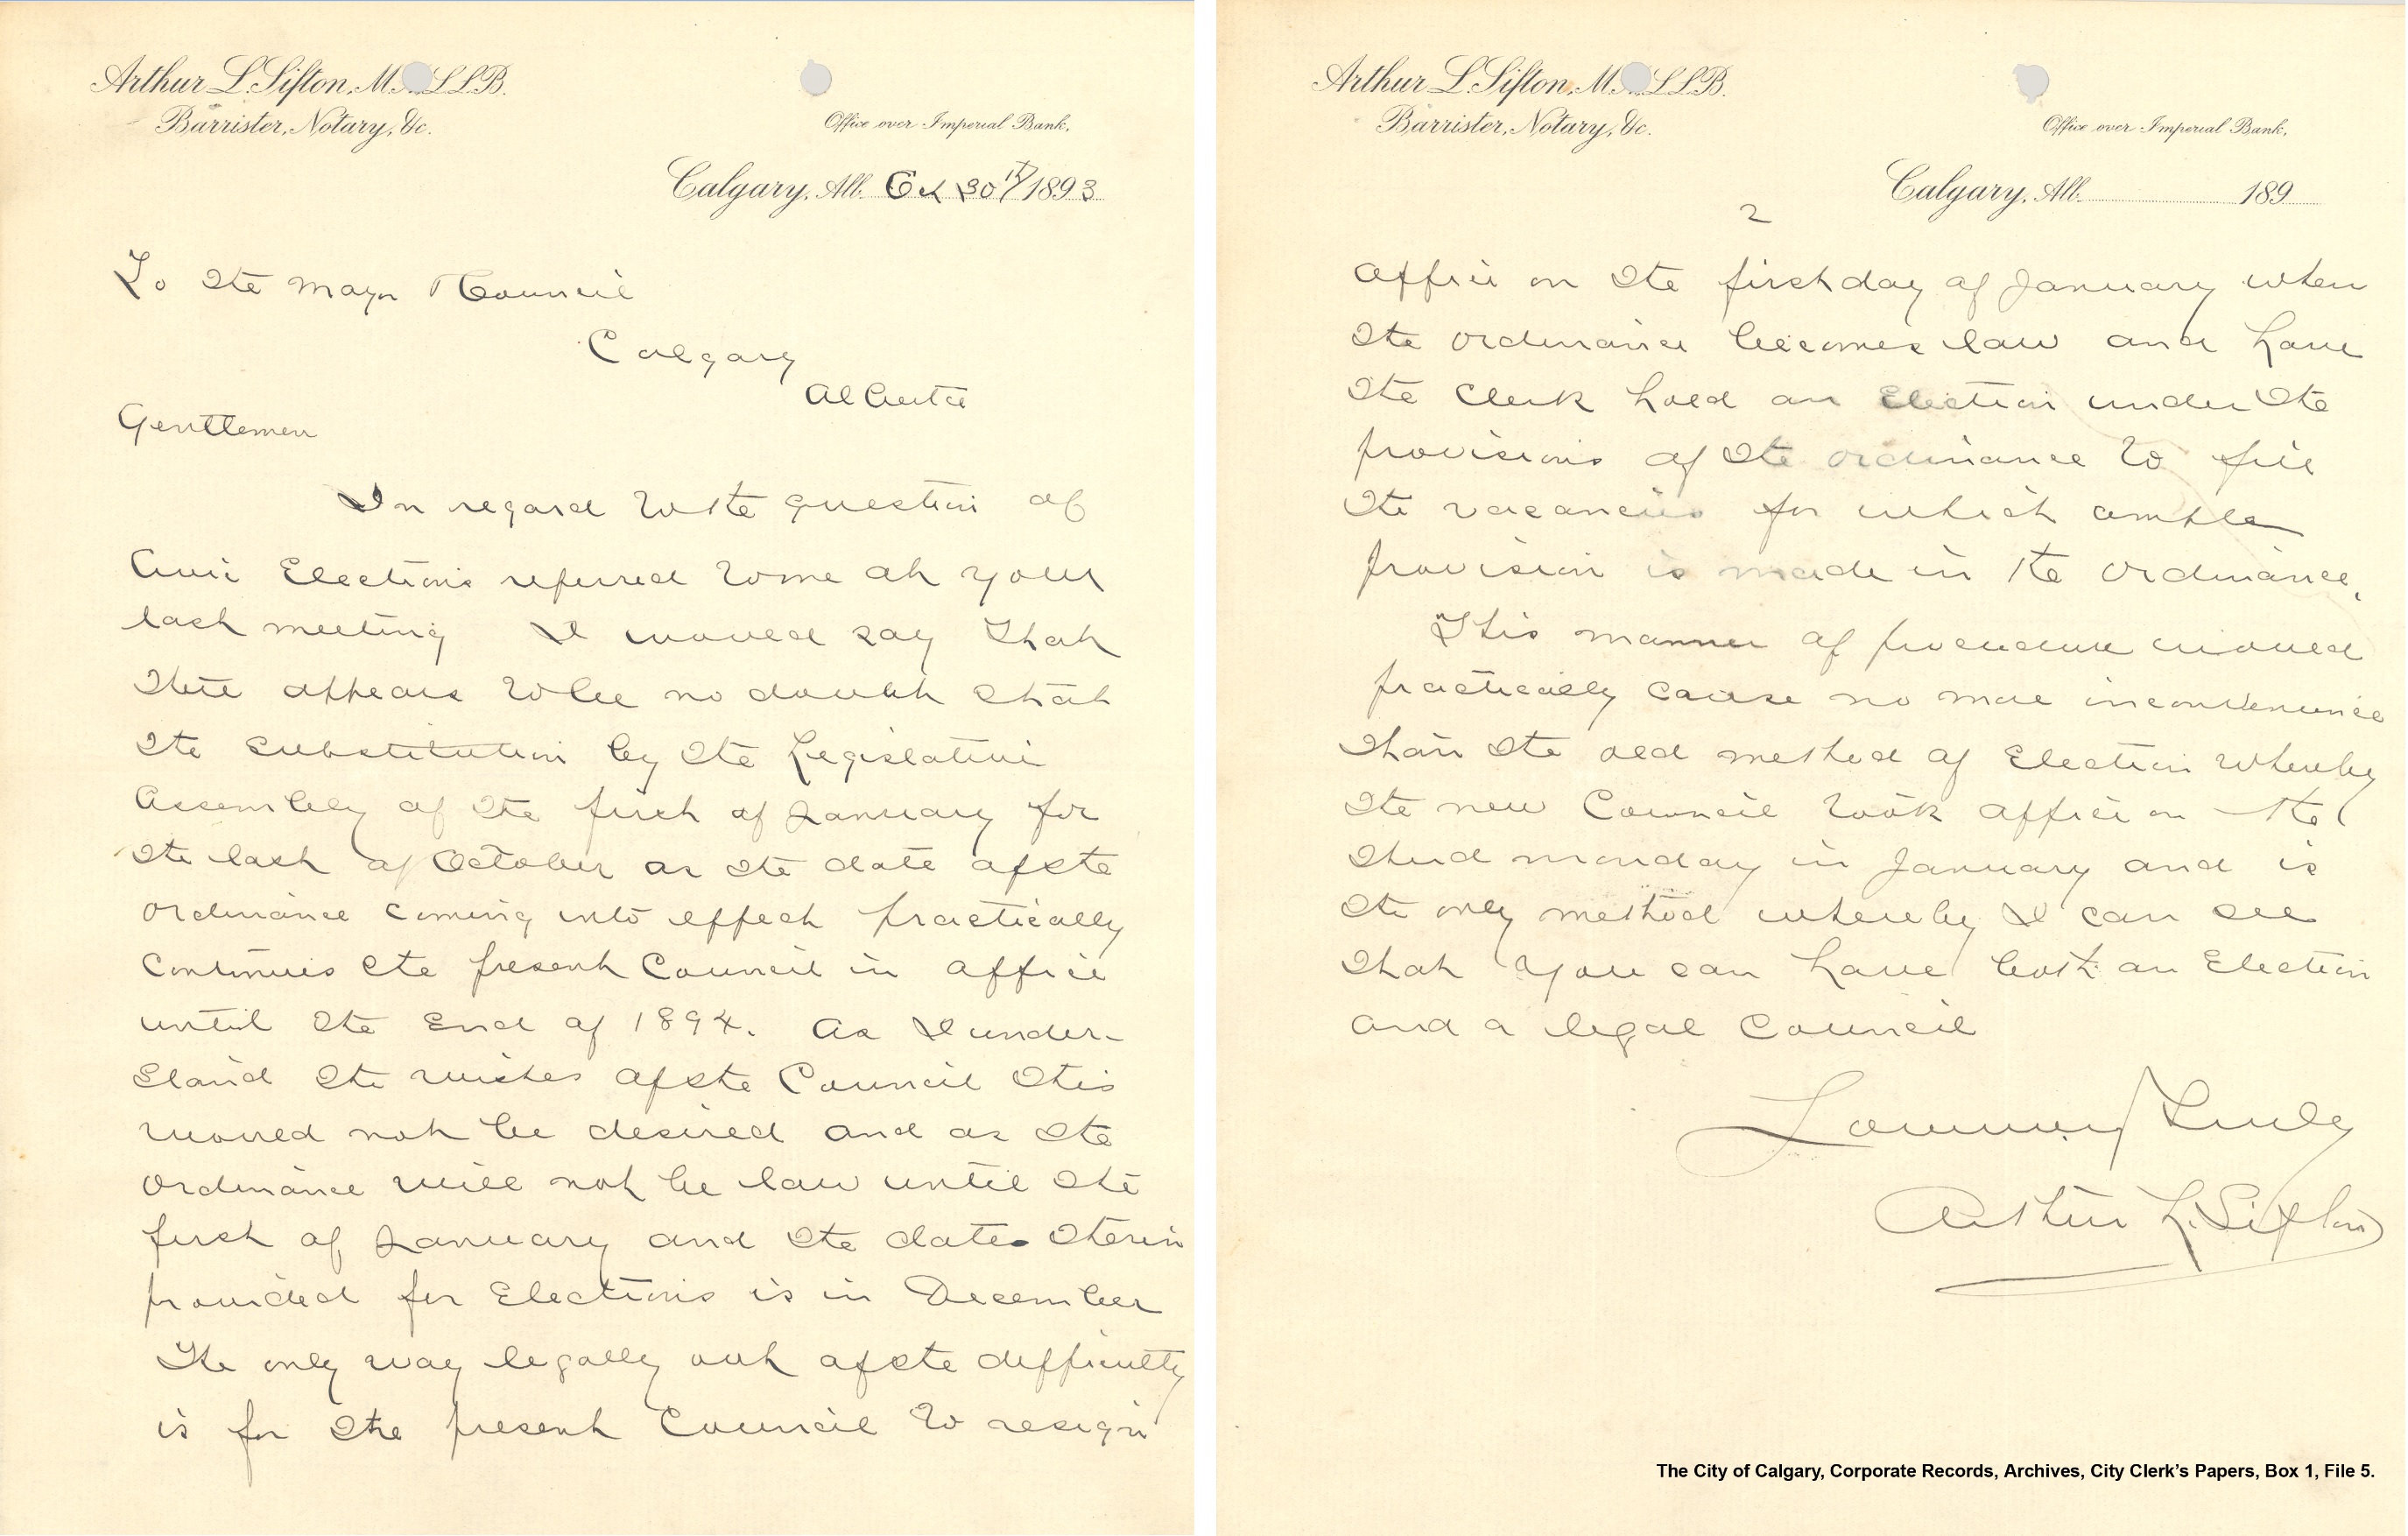 Arthur L. Sifton, M. L L B.
Barrister, Notary, &c.
Office over Imperial Bank,
Calgary, Alb. Oct 30th 1893
To the Mayor & Council
Calgary
Alberta
Gentlemen
In regard to the question of
Civic Elections referred to me at your
last meeting I would say that
there appears to be no doubt that
the substitution by the Legislative
Assembly of the first of January for
the last of October as the date of the
ordinance coming into effect practically
continues the present Council in office
until the End of 1894. As I under-
stand the wishes of the Council this
would not be desired and as the
ordinance will not be law until the
first of January and the date therein
provided for Elections is in December
The only way legally out of the difficulty
is for the present Council to resign
Arthur L. Sifton, M. L L B.
Barrister, Notary, &c.
Office over Imperial Bank,
Calgary, Alb. 189
2
office on the first day of January when
the ordinance becomes law and have
the clerk hold an Election under the
provisions of the ordinance to fill
the vacancies for which ample
provision is made in the ordinance.
This manner of procedure would
practically cause no more inconvenience
than the old method of Election whereby
the new Council took office on the
third monday in January and is
the only method whereby I can see
that you can have both an Election
and a legal Council
Yours Truly
Arthur L. Sifton
The City of Calgary, Corporate Records, Archives, City Clerk's Papers, Box 1, File 5.